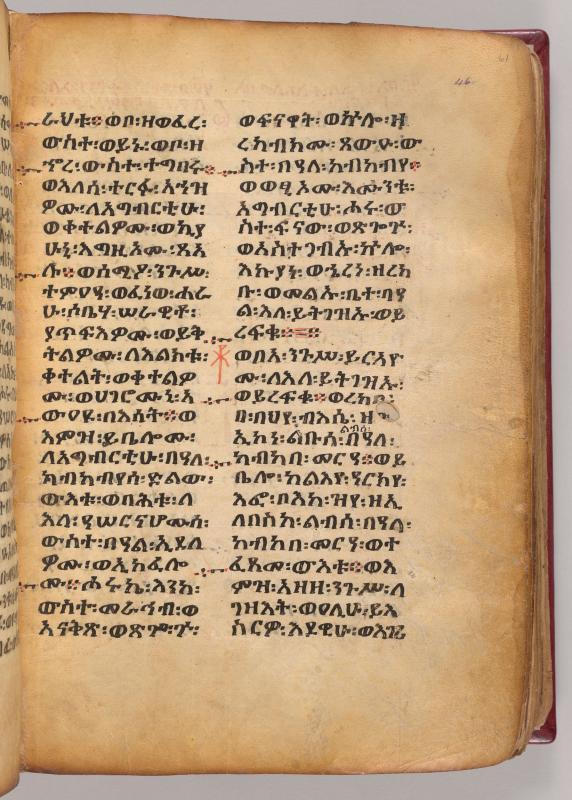 ራህቱ፡ወቦ፡ዘወፈረ፡
ውስተ፡ወይኑ፡ወቦ፡ዘ
ኀረ፡ውስተ፡ተግባሩ፡
ወእለሰ፡ተርፉ፡አኀዝ
ዎሙ፡ለአግብርቲሁ፡
ወቀተልዎሙ፡ወኪያ
ሁኒ፡እግዚኦሙ፡ጸአ
ሉ፨ወሰሚዖ፡ንጉሥ፡
ተምዓዓ፡ወፈነወ፡ሐራ
ሁ፡ሶቤሃ፡ሠራዊቶ፡
ያጥፍእዎሙ፡ወይቅ
ትልዎሙ፡ለእልክቱ፡
ቀተልት፡ወቀተልዎ
ሙ፡ወሀገሮሙኒ፡አ
ውዓዩ፡በእሳት፨ወ
እምዝ፡ይቤሎሙ፡
ለአግብርቲሁ፡በዓለ፡
ካብካብየሰ፡ድልው፡
ውእቱ፡ወበሕቱ፡ለ
እለ፡ዓሠርናሆሙሰ፡
ውስተ፡በዓል፡ኢደለ
ዎሙ፡ወኢከፈሎ
ሙ፨ሑሩኬ፡እንከ፡
ውስተ፡መራኅብ፡ወ
አናቅጽ፡ወጽጐጕ፡
ወፍናዋት፡ወኵሎ፡ዘ
ረከብክሙ፡ጸውዑ፡ው
ስተ፡በዓለ፡ከብካብየ፨
ወወፂኦሙ፡እሙንቱ፡
አግብርቲሁ፡ሖሩ፡ው
ስተ፡ፍናው፡ወጽጐጕ፡
ወአስተጋብኡ፡ኵሎ፡
እኩያነ፡ወኄረነ፡ዘረከ
ቡ፡ወመልኡ፡ቤተ፡በዓ
ል፡እለ፡ይትገዝኡ፡ወይ
ረፍቁ፨
ወበአ፡ንጉሥ፡ይርአዮ
ሙ፡ለእለ፡ይትገዝኡ፡
ወይረፍቁ፨ወረከበ፡
በ፡በህየ፡ብእሴ፡ዘ
ኢኮነ፡ልቡሰ፡በዓለ፡
ልብሰ፡
ከብካበ፡መርዓ፨ወይ
ቤሎ፡ካልእየ፡ዓርክየ፡
እፎ፡ቦእከ፡ዝየ፡ዘኢ
ለበስከ፡ልብሰ፡በዓለ፡
ከብካበ፡መርዓ፡ወተ
ፈጸመ፡ውእቱ፨ወእ
ምዝ፡አዘዘ፡ንጉሥ፡ለ
ገዝእት፡ወዓለሁ፡ይእ
ስርዎ፡እደዊሁ፡ወእገ
46
61